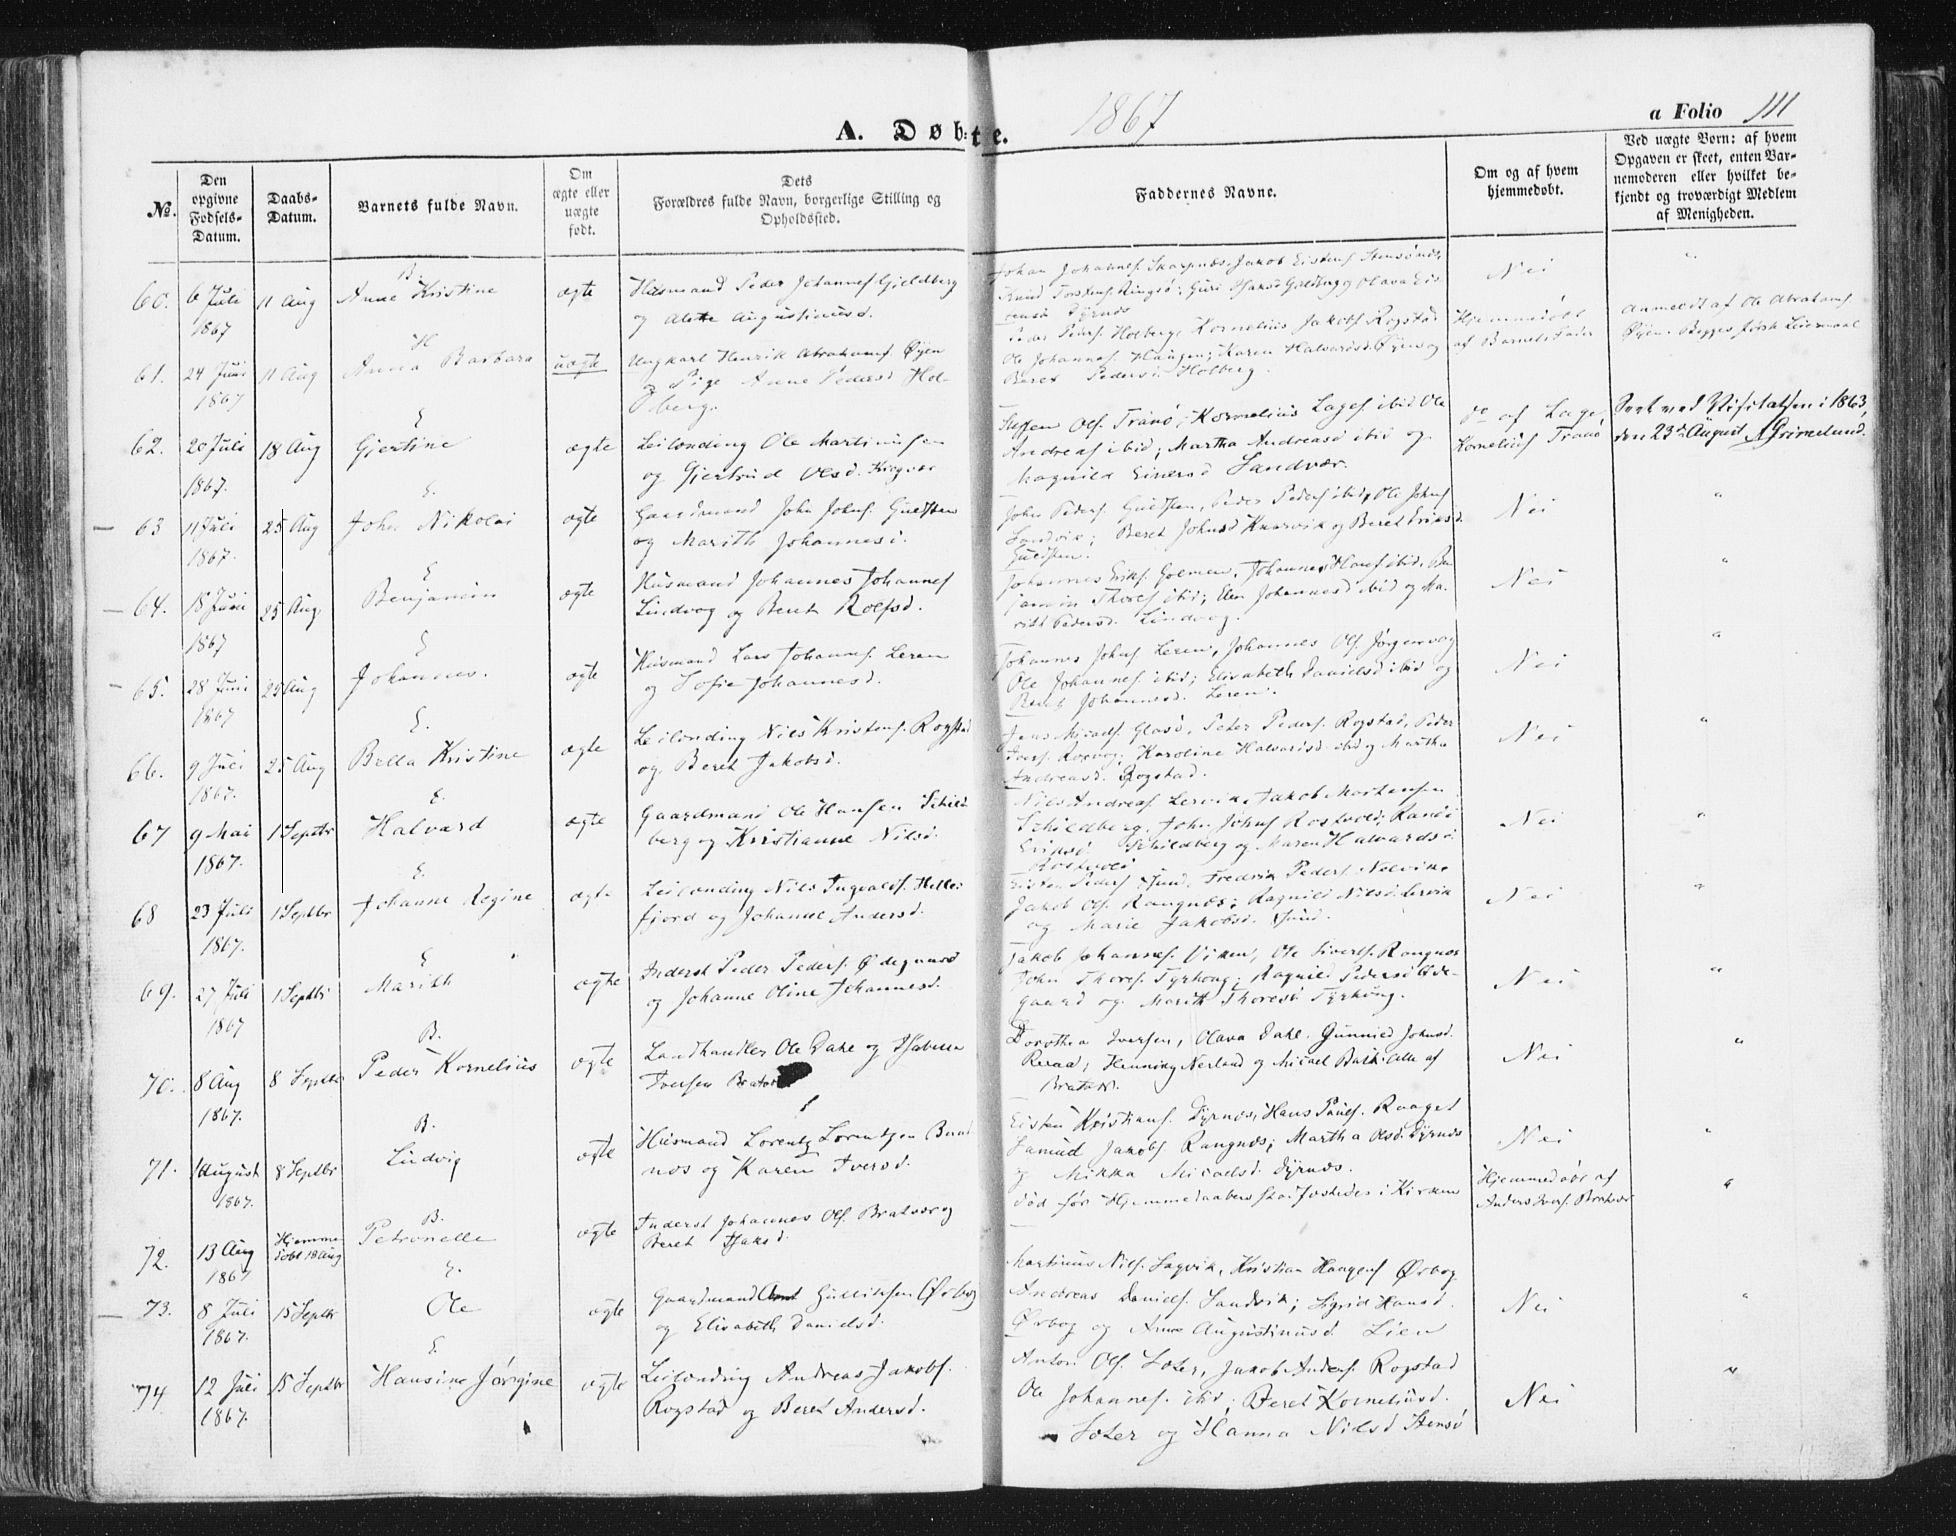 1867
a Folio 111
A. Døbte.
No.
Den opgivne Fødsels-Datum.
Daabs-Datum.
Barnets fulde Navn.
Om ægte eller uægte født.
Dets Forældres fulde Navn, borgerlige Stilling og Opholdssted.
Faddernes Navne.
Om og af hvem hjemmedøbt.
Ved uægte Børn: af hvem Opgaven er skeet, enten Barnemoderen eller hvilket bekjendt og troværdigt Medlem af Menigheden.
60. 6 Juli 1867 11 Aug B. Anne Kristine ægte
Husmand Peder Johannes Gjeldberg
og Alette Augustinusd.
Nei "
61. 24 Juni 1867 11 Aug H Anna Barbara uægte
Ungkarl Henrik Abrahams. Øyen
og Pige Anne Pedersd Holberg.
Peder Peders. Holberg, Kornelius Jakobs. Rogstad
Ole Johannes. Haugen; Karen Halvorsd. Øyen og
Beret Pedersd. Holberg.
Hjemmedøbt af Barnets Fader
Anmeldt af Ole Abrahams.
Øyen. Begges første Leiermaal
62. 20 Juli 1867. 18 Aug E Gjertine ægte
Leilænding Ole Martinusen
og Gjertrud Olsd.
Ols. Tranø, Kornelius Lages. ibid Ole
Andreas. ibid; Martha Andreasd ibid og
Magnild Einersd Sandvær.
do af Lage Kornelius. Tranø
Seet ved Visitatsen i 1863,
den 23de August Grimelund.
63 11 Juli 1867. 25 Aug E. John Nikolai ægte
Gaardmand John Johns.
og Marith Johannesd.
John Peders. Peder Peders. ibid, Ole Johns.
Sandvik; Beret Johnsd og Beret Eriksd.
Nei "
64. 18 Juni 1867 25 Aug. E Benjamin ægte
Husmand Johannes Johannes.
Lindvog og Beret Rolfsd.
Johannes Eriks. Johannes Hans. ibid, Benjamin
Thores. ibid; Elen Johannesd ibid og Marith
Pedersd. Lindvog.
Nei "
65. 28 Juni 1867 25 Aug E Johannes. ægte
Husmand Lars Johannes. Leren
og Sofie Johannesd.
Johannes Johns. Leren, Johannes Ols. Jørgenvog
Ole Johannes. ibid; Elisabeth Danielsd ibid og
Beret Johannesd. Leren.
Nei "
66. 9 Juli 1867. 25 Aug E. Bella Kristine ægte
Leilænding Nils Kristens. Rogstad
og Beret Jakobsd.
Jens Micaels. Glasø, Peter Peders. Rogstad, Peder
Karoline Halvorsd. ibid og Martha
Andreasd. Rogstad.
Nei "
67 9 Mai 1867. 1 Septbr E. Halvard ægte
Gaardmand Ole Hansen Schildberg
og Kristianne Nilsd.
Nils Andreas. Lervik, Jakob Mortensen
Schildberg, John Johns. Rostvold; Randi
Eriksd Schildberg og Maren Halvardsd
Rostvold
Nei "
68 23 Juli 1867. 1 Septbr E. Johanne Regine ægte
Leilænding Nils Ingvalds. Hellesfjord
og Johanne Andersd.
Peders. Fredrik Peders. Nelvik,
Jakob Ols. Rangnæs; Ragnild Nilsd. Lervik
og Marie Jakobsd.
Nei "
69. 27 Juli 1867 1 Septbr E Marith ægte
Inderst Peder Peders. Ødegaard
og Johanne Oline Johannesd.
Jakob Johannes. Viken, Ole Siverts. Rangnæs
John Thores. Tyrhoug; Ragnild Pedersd Ødegaard
og Marith Thoresd Tyrhoug.
Nei "
70. 8 Aug 1867. 8 Septbr B. Peder Kornelius ægte
Landhandler Ole Dahl og
Iversen
Dorothea Iversen, Olava Dahl. Gunnild Johnsd.
Henning Nerland og Micael alle af
Nei "
71. 1 August 1867. 8 Septbr B. Ludvig ægte
Husmand Lorentz Lorentzen
og Karen Iversd.
Eisten Kristians. Dyrnæs, Hans Pauls. Raaget
Samuel Jakobs. Rangnæs; Martha Olsd. Dyrnæs
og Mikka Micaelsd. Dyrnæs.
Nei "
72. 13 Aug 1867 Hjemmedøbt 18 Aug B. Petronelle ægte
Inderst Johannes Ols. Bratvær og
Beret
Død før i Kirken
Hjemmedøbt af
Anders Ivers. Bratvær
"
73. 8 Juli 1867. 15 Septbr E. Ole ægte
Gaardmand Gulliksen Ørbog
og Elisabeth Danielsd.
Martinus Nils. Sagvik, Kristian Haagens. Ørbog
Andreas Daniels. Sandvik; Sigrid Hansd.
Ørbog og Anne Augustinusd. Lien
Nei "
74 12 Juli 1867. 15 Septbr E Hansine Jørgine ægte
Leilænding Andreas Jakobs.
Rogstad og Beret Andersd.
Anton Ols. Soter, Jakob Anders. Rogstad
Ole Johannes. ibid; Beret Korneliusd.
Soter og Hanna Nilsd Stensø
Nei "